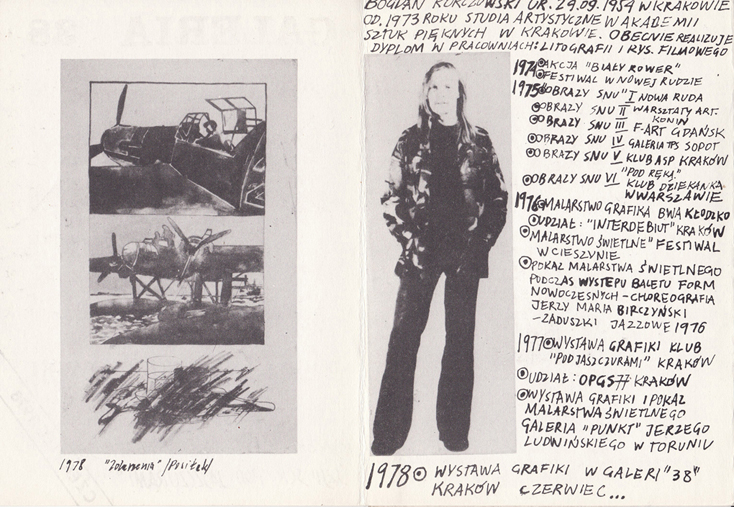 1978 "Złamania" /Positel/
BOGDAN KORCZOWSKI UR. 29.09.1954 W KRAKOWIE
OD 1973 ROKU STUDIA ARTYSTYCZNE W AKADEMII
SZTUK PIĘKNYCH W KRAKOWIE. OBECNIE REALIZUJE
DYPLOM W PRACOWNIACH: LITOGRAFII I RYS. FILMOWEGO
1974 AKCJA "BIAŁY ROWER"
FESTIWAL W NOWEJ RUDZIE
1975 OBRAZY SNU" I NOWA RUDA
OBRAZY SNU II WARSZTATY ART.
KONIN
OBRAZY SNU III F-ART GDAŃSK
OBRAZY SNU IV GALERIA TPS SOPOT
OBRAZY SNU V KLUB ASP KRAKÓW
"POD RĘKĄ"
OBRAZY SNU VI KLUB DZIEKANKA
W WARSZAWIE
1976 MALARSTWO GRAFIKA BWA KŁODZKO
UDZIAŁ: "INTERDEBIUT" KRAKÓW
MALARSTWO ŚWIETLNE" FESTIWAL
W CIESZYNIE
POKAZ MALARSTWA ŚWIETLNEGO
PODCZAS WYSTEPU BALETU FORM
NOWOCZESNYCH - CHOREOGRAFIA
JERZY MARIA BIRCZYŃSKI
-ZADUSZKI JAZZOWE 1976
1977 WYSTAWA GRAFIKI KLUB
"POD JASZCZURAMI" KRAKÓW
UDZIAŁ: OPGS77 KRAKÓW
WYSTAWA GRAFIKI I POKAZ
MALARSTWA ŚWIETLNEGO
GALERIA "PUNKT" JERZEGO
LUDWIŃSKIEGO W TORUNIU
1978 WYSTAWA GRAFIKI W GALERI "38"
KRAKÓW CZERWIEC...